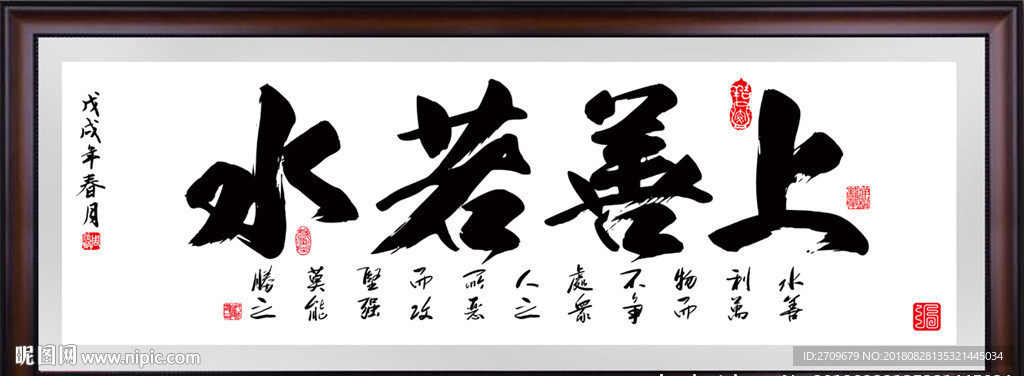 上善若水
水善
利萬
物而
不争
處衆
人之
所惡
而攻
堅强
莫能
勝之
戊戌年春月
昵图网 www.nipic.com
ID:2709679 NO:20180828135321445034